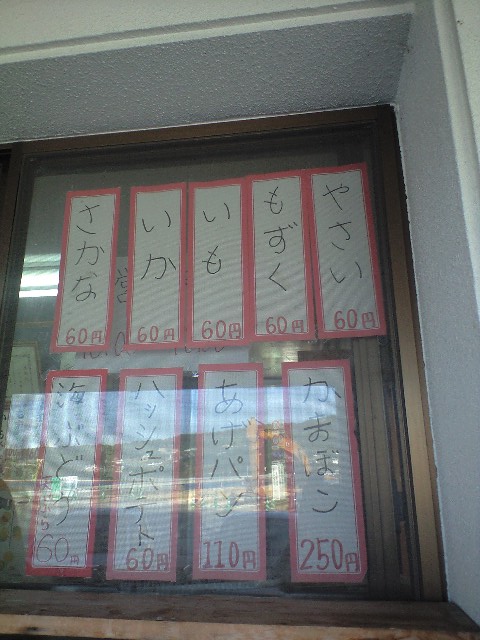 やさい
60円
もずく
60円
いも
60円
いか
60円
さかな
60円
かまぼこ
250円
あげパン
110円
ハッシュポテト
60円
海ぶどう
60円